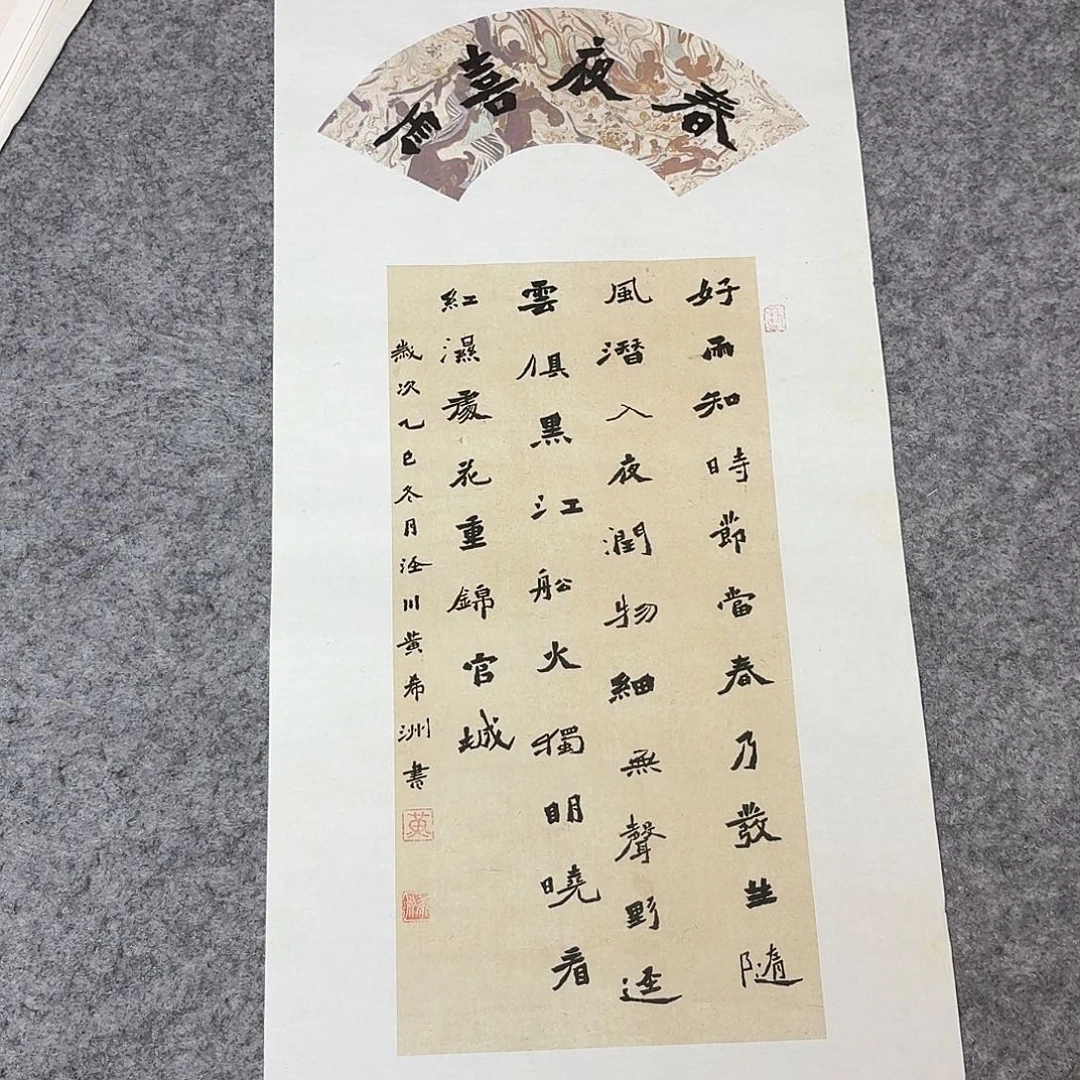 春夜喜雨
好雨知時節當春乃發生隨
風潛入夜潤物細無聲野逕
雲俱黑江船火獨明曉看
紅濕處花重錦官城
歲次乙巳冬月涇川黄希洲書
黄